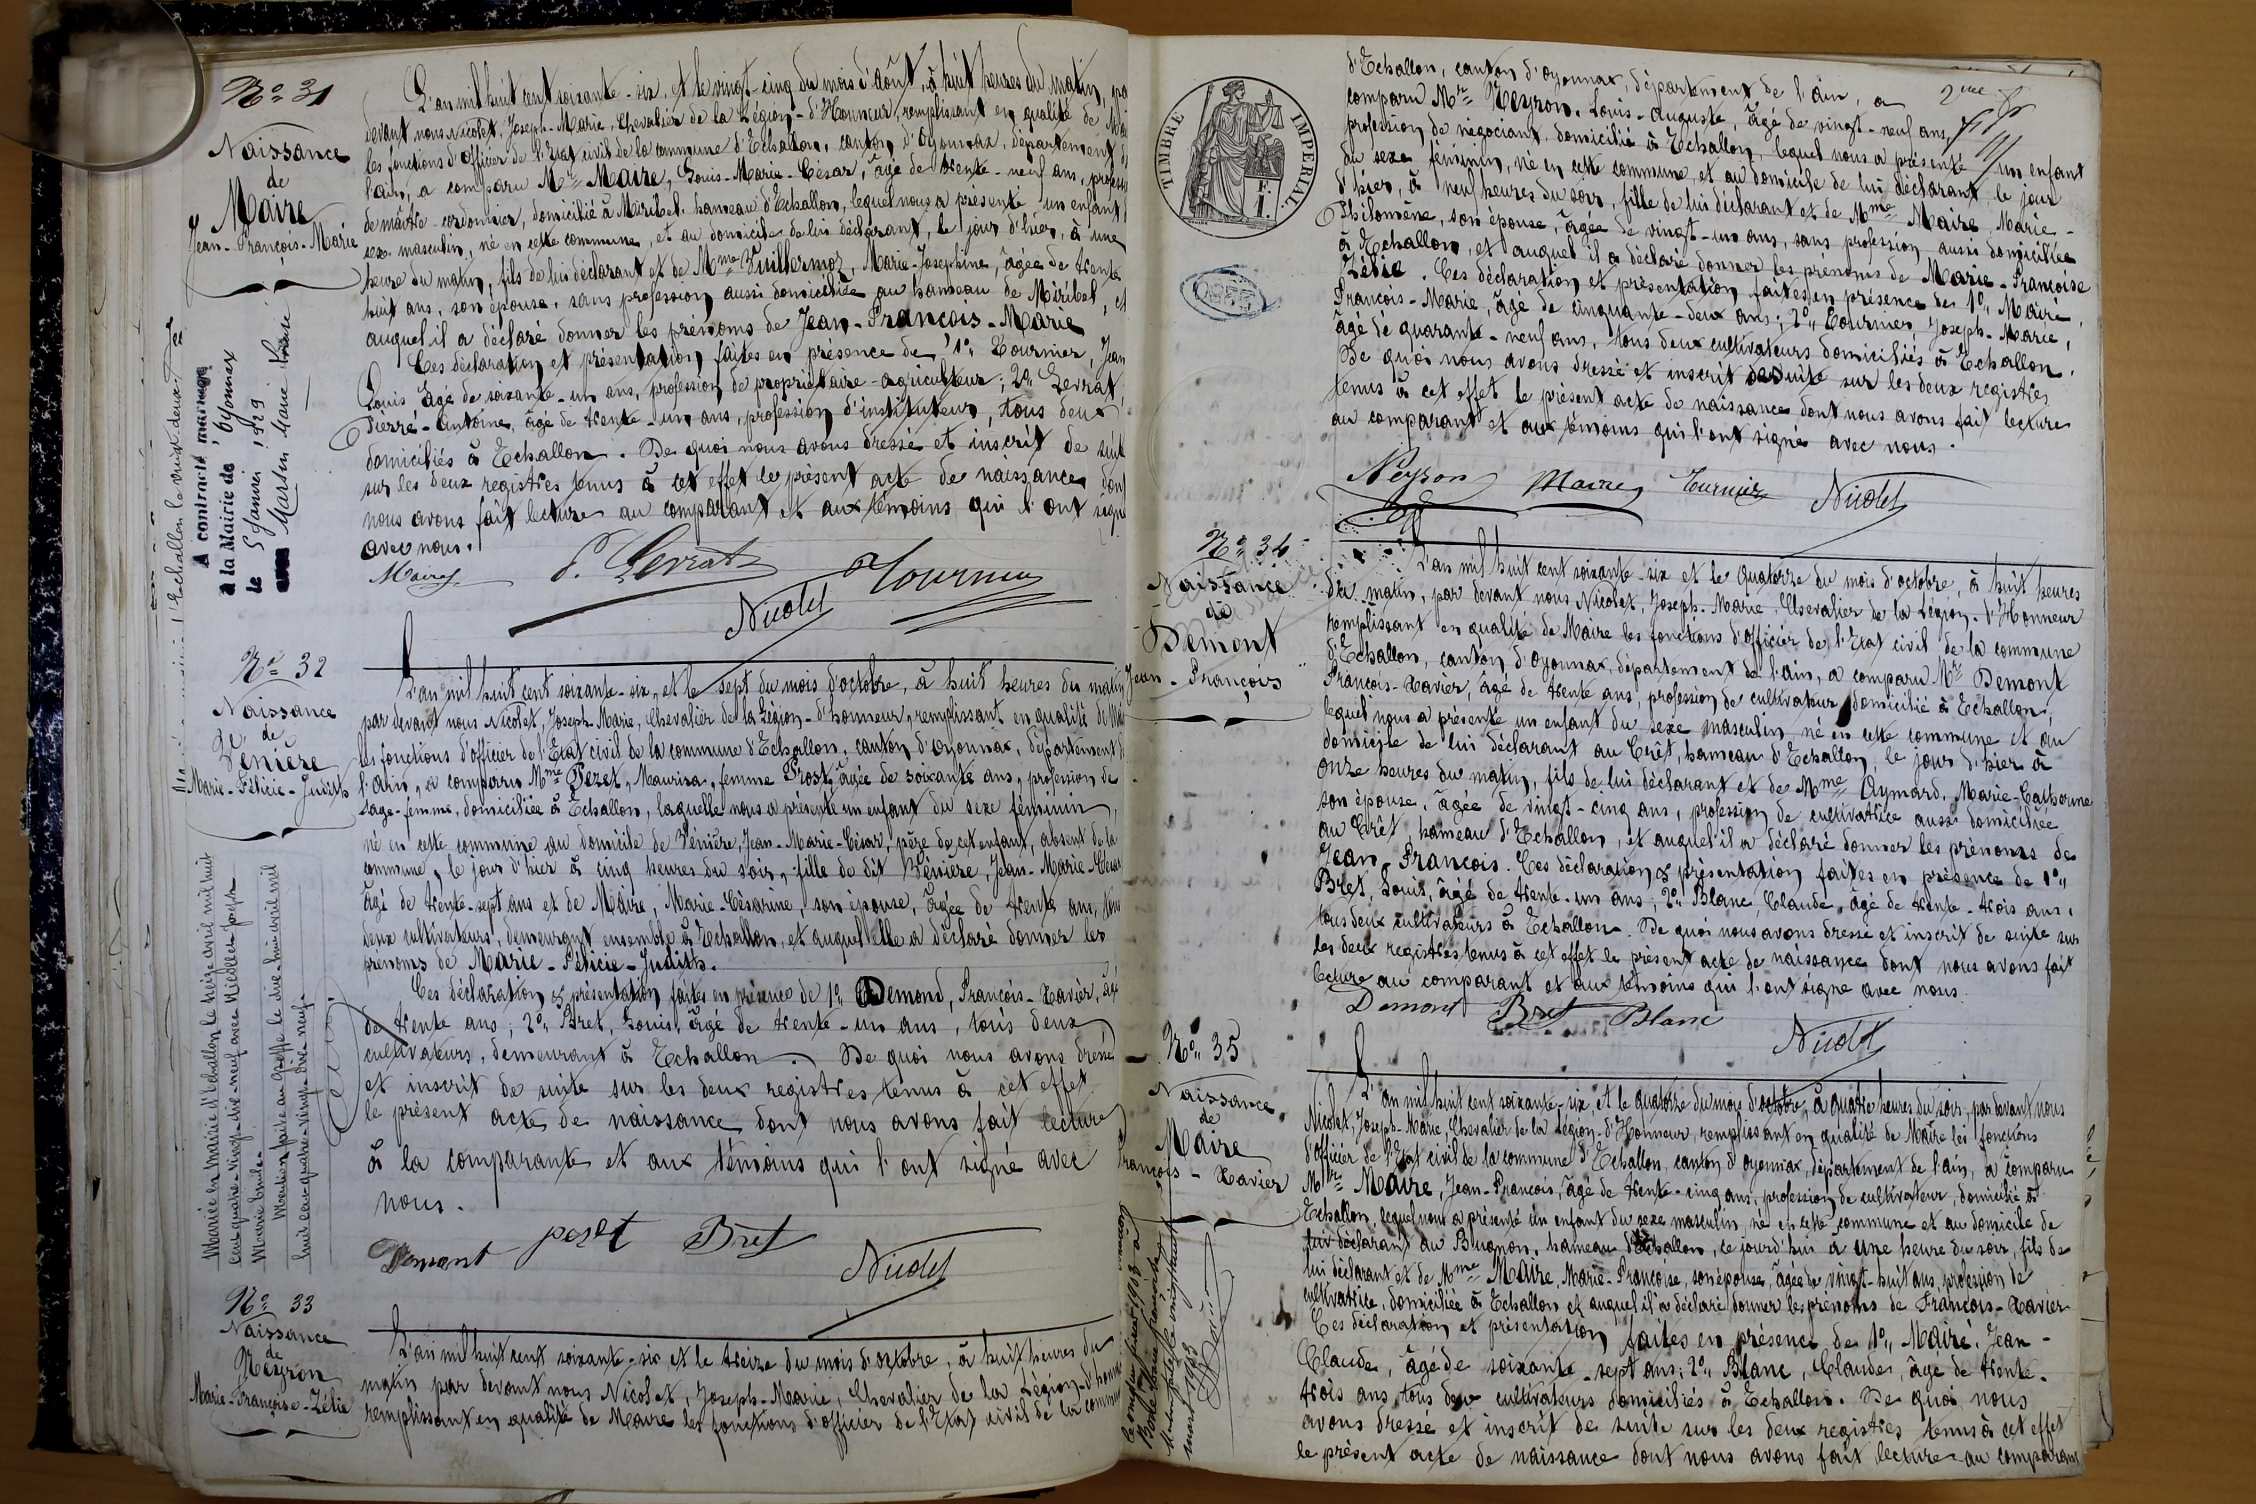 Nº 31
Naissance
de
Maire
Jean-François-Marie
L'an mil huit cent soixante-six, et le vingt-cinq du mois d'août, à huit heures du matin, par
devant nous Nicolet, Joseph-Marie, Chevalier de la Légion-d'Honneur, remplissant en qualité de
les fonctions d'Officier de l'Etat civil de la commune d'Echallon, canton d'Oyonnax, département de
l'ain, a comparu Mr Maire, Louis-Marie-César, âgé de trente-neuf ans, profess
de maître-cordonnier, domicilié à Miribel, hameau d'Echallon, lequel nous a présenté un enfant
sexe masculin, né en cette commune, et au domicile de lui déclarant, le jour d'hier, à une
heure du matin, fils de lui déclarant et de Mme Vuillermoz, Marie-Josephine, âgée de trente
huit ans, son épouse, sans profession aussi domiciliée au hameau de Miribel, et
auquel il a déclaré donner les prénoms de Jean-François-Marie
Ces déclaration et présentation faites en présence de 1º Tournier, Jean
Louis âgé de soixante-un ans, profession de propriétaire-agriculteur; 2º Levrat,
Pierre-Antoine, âgé de trente-un ans, profession d'instituteur, tous deux
domiciliés à Echallon. De quoi nous avons dressé et inscrit de suite
sur les deux registres tenus à cet effet le présent acte de naissance dont
nous avons fait lecture au comparant et aux témoins qui l'ont signé
avec nous.
Maire P. Levrat Tournier
Nicolet
A contracté mariage
à la Mairie de Oyonnax
le 5 Janvier 1929
avec Marie
Nº 32
Naissance
de
Venière
Marie-Félicie-Judith
L'an mil huit cent soixante-six, et le sept du mois d'octobre, à huit heures du matin
par devant nous Nicolet, Joseph-Marie, Chevalier de la Légion-d'honneur, remplissant en qualité de
les fonctions d'officier de l'Etat civil de la commune d'Echallon, canton d'oyonnax, département de
l'ain, a comparu Mme Pezet, Maurisa, femme Prost, âgée de soixante ans, profession de
sage-femme, domiciliée à Echallon, laquelle nous a présenté un enfant du sexe féminin,
né en cette commune au domicile de Venière, Jean-Marie-César, père de cet enfant, absent de la
commune, le jour d'hier à cinq heures du soir, fille du dit Venière, Jean-Marie-César
âgé de trente-sept ans et de Maire, Marie-Césarine, son épouse, âgée de trente ans, tous
deux cultivateurs, demeurant ensemble à Echallon, et auquel elle a déclaré donner les
prénoms de Marie-Félicie-Judith.
Ces déclaration & présentation faites en présence de 1º Demond, François-Xavier, âgé
de trente ans; 2º Bret, Louis, âgé de trente-un ans, tous deux
cultivateurs, demeurant à Echallon. De quoi nous avons dressé
et inscrit de suite sur les deux registres tenus à cet effet
le présent acte de naissance dont nous avons fait lecture
à la comparante et aux témoins qui l'ont signé avec
nous.
Demont pezet Bret
Nicolet
Mariée en Mairie d'Echallon le treize avril mil huit
cent quatre-vingt-dix-neuf avec
Mention faite au greffe le dix-huit avril mil
huit cent quatre-vingt-dix-neuf.
Nº 33
Naissance
de
Neyron
Marie-Françoise-Zélie
L'an mil huit cent soixante-six et le treize du mois d'octobre, à huit heures du
matin par devant nous Nicolet, Joseph-Marie, Chevalier de la Légion-d'honneur
remplissant en qualité de Maire les fonctions d'officier de l'Etat civil de la commune
TIMBRE IMPERIAL
2me
d'Echallon, canton d'Oyonnax, département de l'ain, a
comparu Mr Neyron, Louis-Auguste, âgé de vingt-neuf ans,
profession de négociant, domicilié à Echallon, lequel nous a présenté un enfant
du sexe féminin, né en cette commune, et au domicile de lui déclarant le jour
d'hier, à neuf heures du soir, fille de lui déclarant et de Mme Maire, Marie-
Philomène, son épouse, âgée de vingt-un ans, sans profession aussi domiciliée
à Echallon, et auquel il a déclaré donner les prénoms de Marie-Françoise
Zélie. Ces déclaration et présentation faites en présence de 1º Maire,
François-Marie, âgé de cinquante-deux ans; 2º Tournier, Joseph-Marie,
âgé de quarante-neuf ans, tous deux cultivateurs domiciliés à Echallon.
De quoi nous avons dressé et inscrit de suite sur les deux registres
tenus à cet effet le présent acte de naissance dont nous avons fait lecture
au comparant et aux témoins qui l'ont signé avec nous.
Neyron Maire Turnier Nicolet
Nº 34
Naissance
de
Demont
Jean-François
L'an mil huit cent soixante-six et le quatorze du mois d'octobre, à huit heures
du matin, par devant nous Nicolet, Joseph-Marie, Chevalier de la Légion-d'Honneur
remplissant en qualité de Maire les fonctions d'Officier de l'Etat civil de la commune
d'Echallon, canton d'Oyonnax, département de l'ain, a comparu Mr Demont
François-Xavier, âgé de trente ans, profession de cultivateur domicilié à Echallon,
lequel nous a présenté un enfant du sexe masculin, né en cette commune et au
domicile de lui déclarant au Crêt, hameau d'Echallon, le jour d'hier à
onze heures du matin, fils de lui déclarant et de Mme Aymard, Marie-Catherine
son épouse, âgée de vingt-cinq ans, profession de cultivatrice aussi domiciliée
au Crêt, hameau d'Echallon, et auquel il a déclaré donner les prénoms de
Jean-François. Ces déclaration & présentation faites en présence de 1º
Bret, Louis, âgé de trente-un ans; 2º Blanc, Claude, âgé de trente-trois ans,
tous deux cultivateurs à Echallon. De quoi nous avons dressé et inscrit de suite sur
les deux registres tenus à cet effet le présent acte de naissance dont nous avons fait
lecture au comparant et aux témoins qui l'ont signé avec nous.
Demont Bret Blanc
Nicolet
Nº 35
Naissance
de
Maire
François-Xavier
L'an mil huit cent soixante-six, et le quatorze du mois d'octobre, à quatre heures du soir, par devant nous
Nicolet, Joseph-Marie, Chevalier de la Légion-d'Honneur, remplissant en qualité de Maire les fonctions
d'officier de l'Etat civil de la commune d'Echallon, canton d'oyonnax, département de l'ain, a comparu
Mr Maire, Jean-François, âgé de trente-cinq ans, profession de cultivateur, domicilié à
Echallon, lequel nous a présenté un enfant du sexe masculin, né en cette commune et au domicile de
lui déclarant au Bugnon, hameau d'Echallon, ce jourd'hui à une heure du soir, fils de
lui déclarant et de Mme Maire, Marie-Françoise, son épouse, âgée de vingt-huit ans, profession de
cultivatrice, domiciliée à Echallon et auquel il a déclaré donner les prénoms de François-Xavier
Ces déclaration et présentation faites en présence de 1º Maire, Jean-
Claude, âgé de soixante-sept ans; 2º Blanc, Claude, âgé de trente-
trois ans tous deux cultivateurs domiciliés à Echallon. De quoi nous
avons dressé et inscrit de suite sur les deux registres tenus à cet effet
le présent acte de naissance dont nous avons fait lecture au comparant